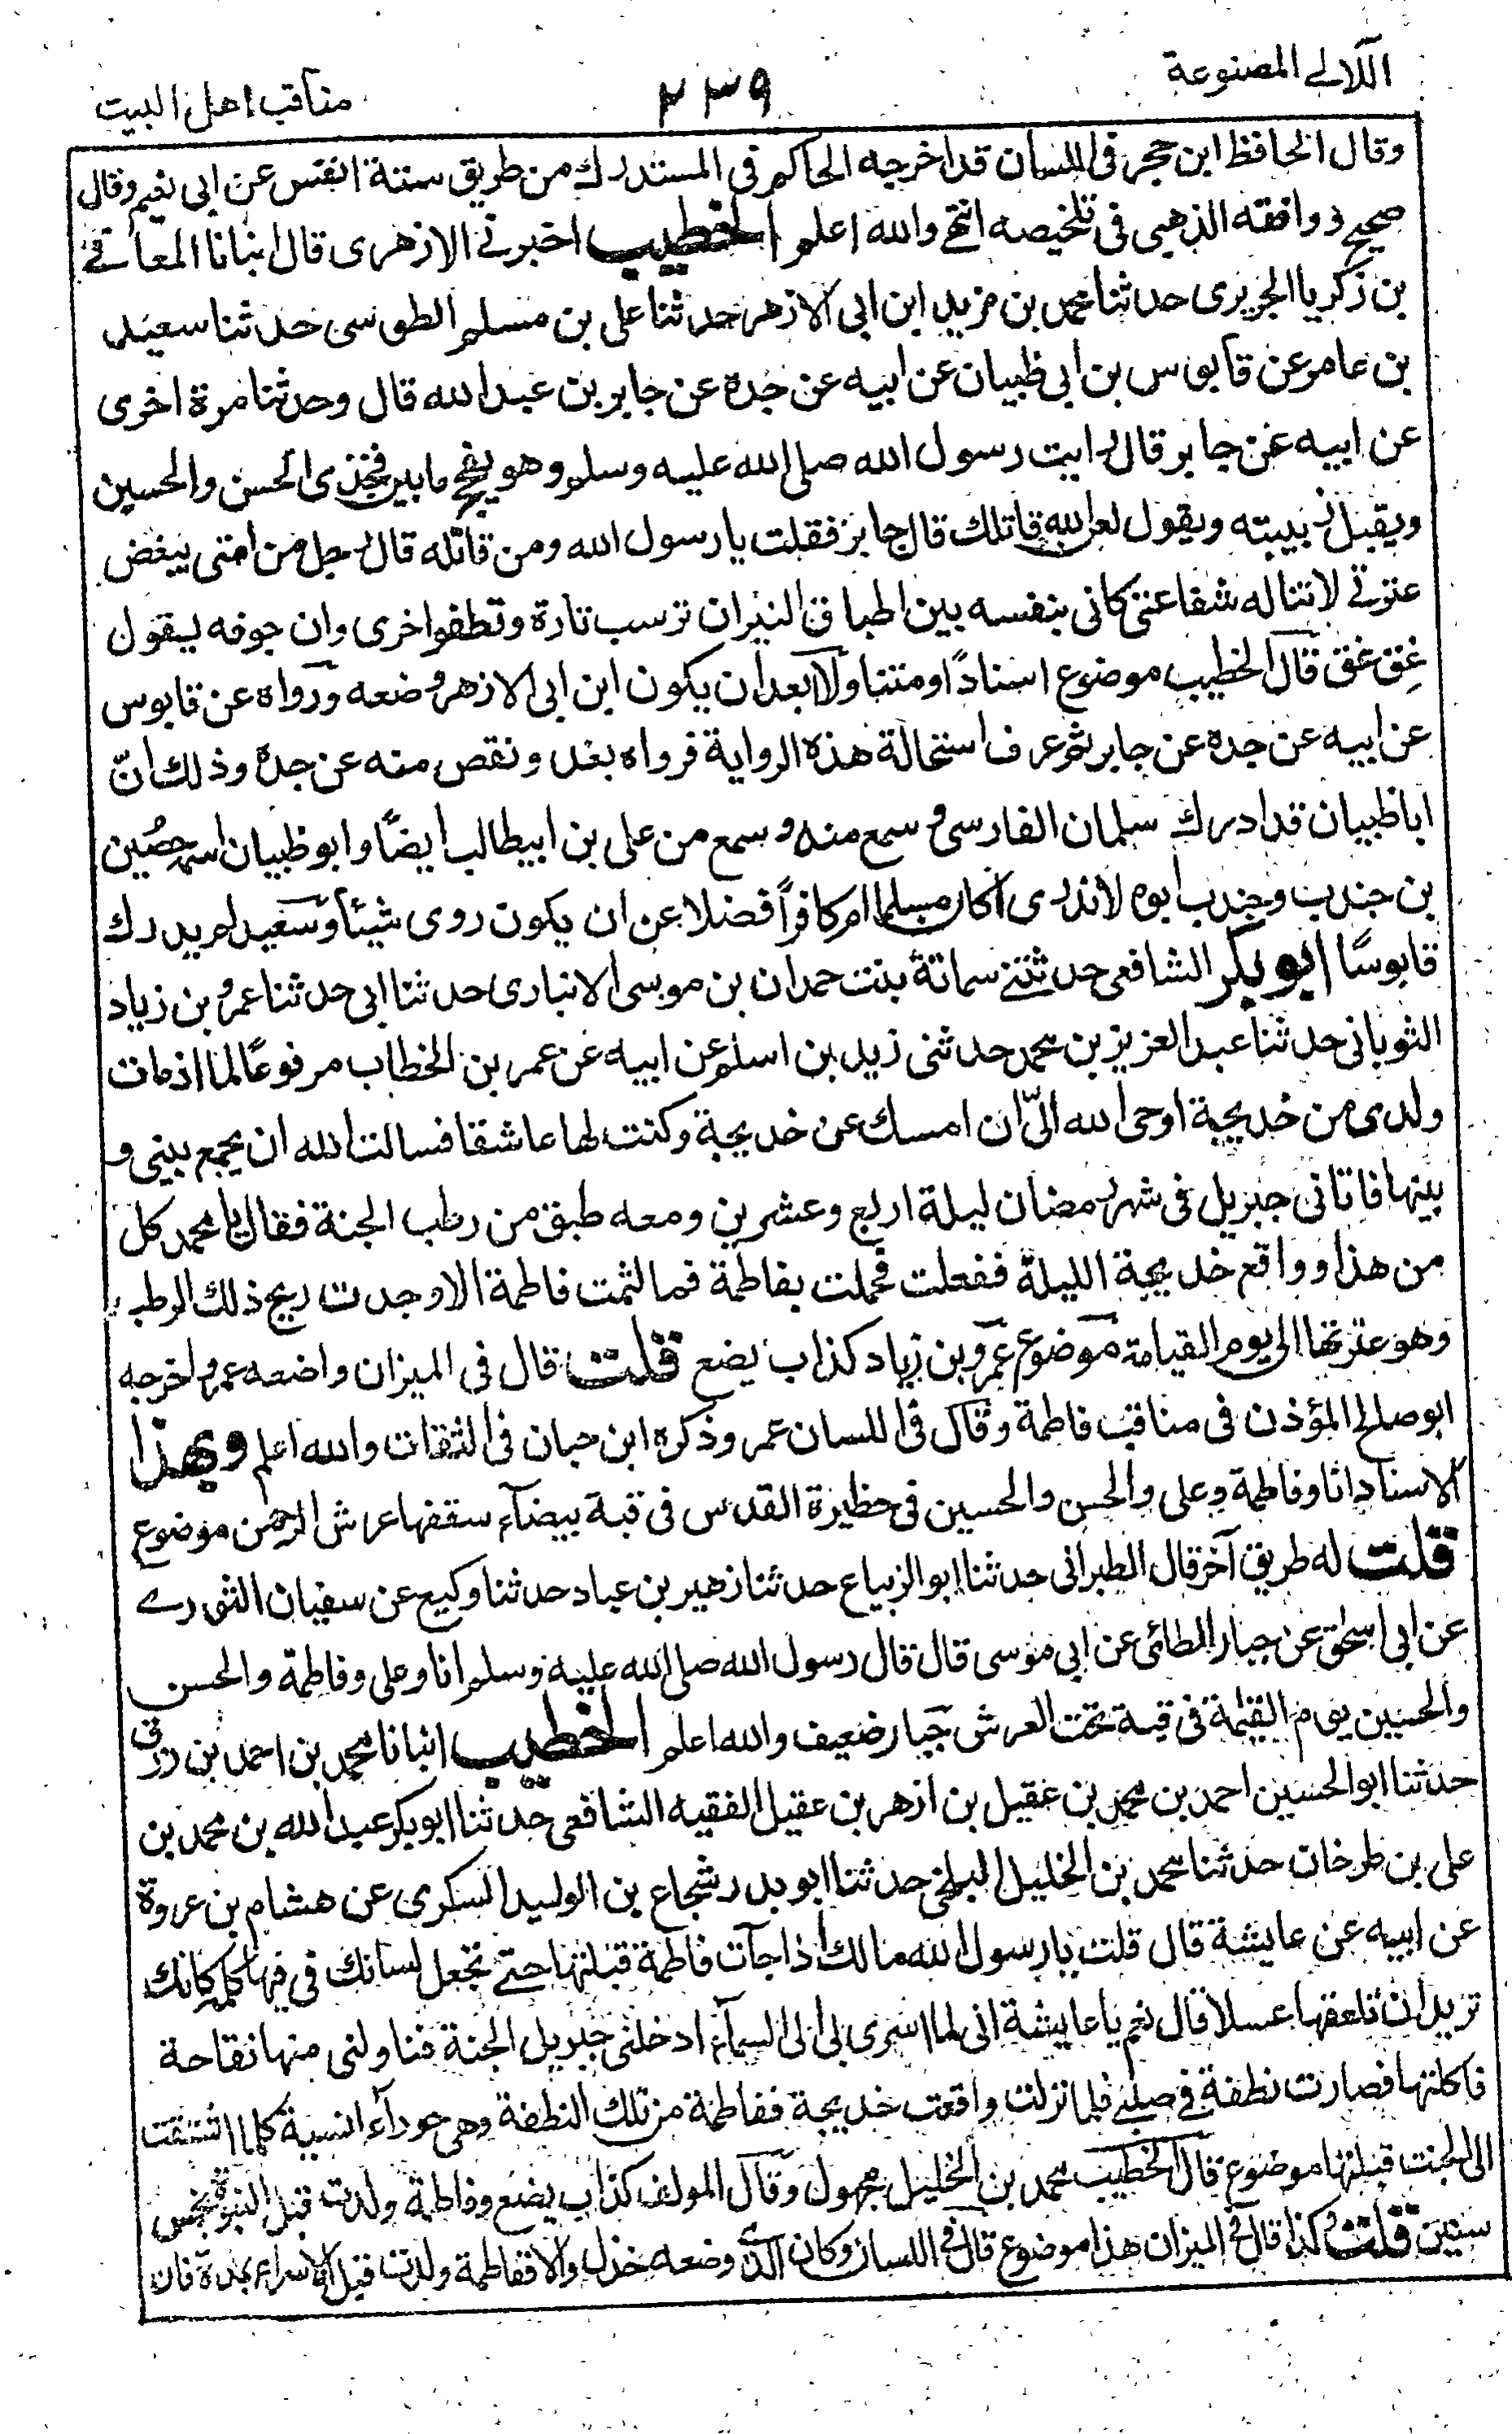 اللآلے المصنوعة
٢٣٩
مناقب اهل البيت
وقال الحافظ ابن حجر فى اللسان قد اخرجه الحاكم فى المستدرك من طريق ستة انفس عن ابى نعيم وقال
صحيح ووافقه الذهبى فى تلخيصه انتهے والله اعلم الخطيب اخبرنے الازهرى قال انبانا المعافے
بن زكريا الجريرى حدثنا محمد بن مزيد ابن ابى الازهر حدثنا على بن مسلم الطوسى حدثنا سعيد
بن عامر عن قابوس بن ابى ظبيان عن ابيه عن جده عن جابر بن عبد الله قال وحدثنا مرة اخرى
عن ابيه عن جابر قال رايت رسول الله صلى الله عليه وسلم وهو يفحج ما بين فخذى الحسن والحسين
ويقبل زبيبته ويقول لعن الله قاتلك قال جابر فقلت يا رسول الله ومن قاتله قال رجل من امتى يبغض
عترتے لا تناله شفاعتى كانى بنفسه بين اطباق النيران ترسب تارة وتطفو اخرى وان جوفه ليقول
غِق غق قال الخطيب موضوع اسنادًا ومتنا ولا ابعد ان يكون ابن ابى الازهر وضعه ورواه عن قابوس
عن ابيه عن جده عن جابر ثم عرف استحالة هذه الرواية فرواه بعد ونقص منه عن جده وذلك انّ
ابا ظبيان قد ادرك سلمان الفارسى و سمع منه و سمع من على بن ابيطالب ايضًا وابو ظبيان اسمه حصُين
بن جندب وجندب ابوه لا ندرى اكان مسلما ام كافراً فضلا عن ان يكون روى شيئاً وسعيد لم يدرك
قابوسًا ابو بكر الشافعى حدثتنے سماتة بنت حمدان بن موسى الانبارى حدثنا ابى حدثنا عمرو بن زياد
الثوبانى حدثنا عبد العزيز بن محمد حدثنى زيد بن اسلم عن ابيه عن عمر بن الخطاب مرفوعًا لما اذ مات
ولدى من خديجة اوحى الله الىّ ان امسك عن خديجة وكنت لها عاشقا فسالت الله ان يجمع بينى و
بينها فاتانى جبريل فى شهر رمضان ليلة اربع وعشرين ومعه طبق من رطب الجنة فقال يا محمد كل
من هذا وواقع خديجة الليلة ففعلت فحملت بفاطمة فما لثمت فاطمة الا وجدت ريح ذلك الرطب
وهو عترتها الى يوم القيامة موضوع عمرو بن زياد كذاب يضع قلت قال فى الميزان واضعه عمرو اخرجه
ابو صالح المؤذن فى مناقب فاطمة وقال فى اللسان عمر وذكره ابن حبان فى الثقات والله اعلم وبهذا
الاسناد انا وفاطمة وعلى والحسن والحسين فى حظيرة القدس فى قبة بيضآء سقفها عرش الرحمن موضوع
قلت له طريق آخر قال الطبرانى حدثنا ابو الزنباع حدثنا زهير بن عباد حدثنا وكيع عن سفيان الثورے
عن ابى اسحٰق عن جبار الطائى عن ابى موسى قال قال رسول الله صلى الله عليه وسلم انا وعلى وفاطمة والحسن
والحسين يوم القيٰمة فى قبة تحت العرش جبار ضعيف والله اعلم الخطيب انبانا محمد بن احمد بن رزق
حدثنا ابو الحسين احمد بن محمد بن عقيل بن ازهر بن عقيل الفقيه الشافعى حدثنا ابو بكر عبد الله بن محمد بن
على بن طرخان حدثنا محمد بن الخليل البلخى حدثنا ابو بدر شجاع بن الوليد السكرى عن هشام بن عروة
عن ابيه عن عايشة قال قلت يا رسول الله مالك اذا جآت فاطمة قبلتها حتے تجعل لسانك فى فيها كله كانك
تريد ان تلعقها عسلا قال نعم يا عايشة انى لما اسرى بى الى السمآء ادخلنى جبريل الجنة فناولنى منها تفاحة
فاكلتها فصارت نطفة فے صلبے فلما نزلت واقعت خديجة ففاطمة من تلك النطفة وهى حورآء انسية كلما اشتقت
الى الجنت قبلتها موضوع قال الخطيب محمد بن الخليل مجهول وقال المولف كذاب يضع وفاطمة ولدت قبل النبوة بخمس
سنين قلت كذا قال فى الميزان هذا موضوع قال فى اللسان وكان الذى وضعه خزل والا ففاطمة ولدت قبل الاسراء بمدة فان